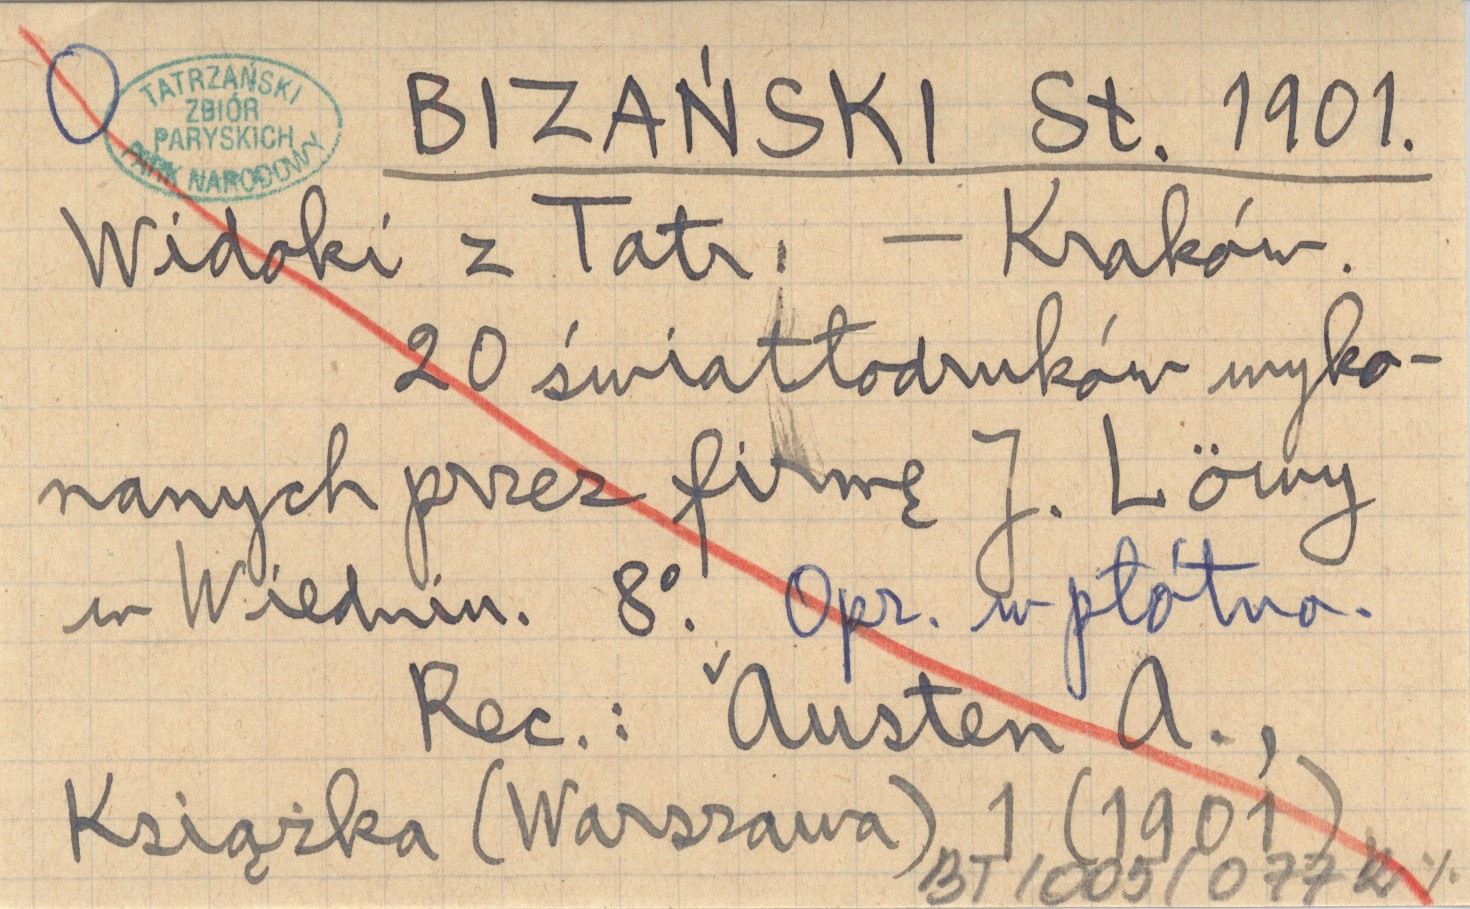 TATRZAŃSKI
ZBIÓR
PARYSKICH
PARK NARODOWY
BIZAŃSKI St. 1901.
Widoki z Tatr. — Kraków.
20 światłodruków wyko-
nanych przez firmę J. Löwy
w Wiedniu. 8°. Opr. w płótno.
Rec.: Austen A.,
Książka (Warszawa) 1 (1901)
BT/005/077